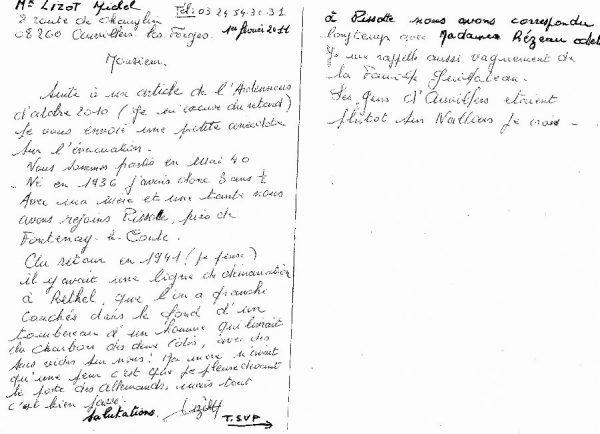 Mr LIZOT Michel Tél: 03 24 54 30 31
2 route de
08260 Auvillers les Forges. 1er février 2011
Monsieur.
Suite à un article de l'Ardennais
d'octobre 2010 (Je m'excuse du retard)
Je vous envoie une petite anecdote
sur l'évacuation.
Nous sommes partis en Mai 40
Né en 1936 j'avais donc 3 ans ½
Avec ma mère et une tante nous
avons rejoins Pissotte, près de
Fontenay-le-Comte.
Au retour en 1941 (je pense)
il y avait une ligne de démarcation
à Réthel, que l'on a franchie
Couchés dans le fond d'un
tombereau d'un homme qui livrait
du charbon des deux côtés, avec des
sacs vides sur nous! Ma mère n'avait
qu'une peur c'est que je pleure devant
le poste des Allemands, mais tout
c'est bien passé.
Salutations.
T.SVP
à Pissotte nous avons correspondu
longtemp avec Madame Rézeau
Je me rappelle aussi vaguement de
la Famille
Les gens d'Auvillers étaient
plutôt sur Nalliers je crois -